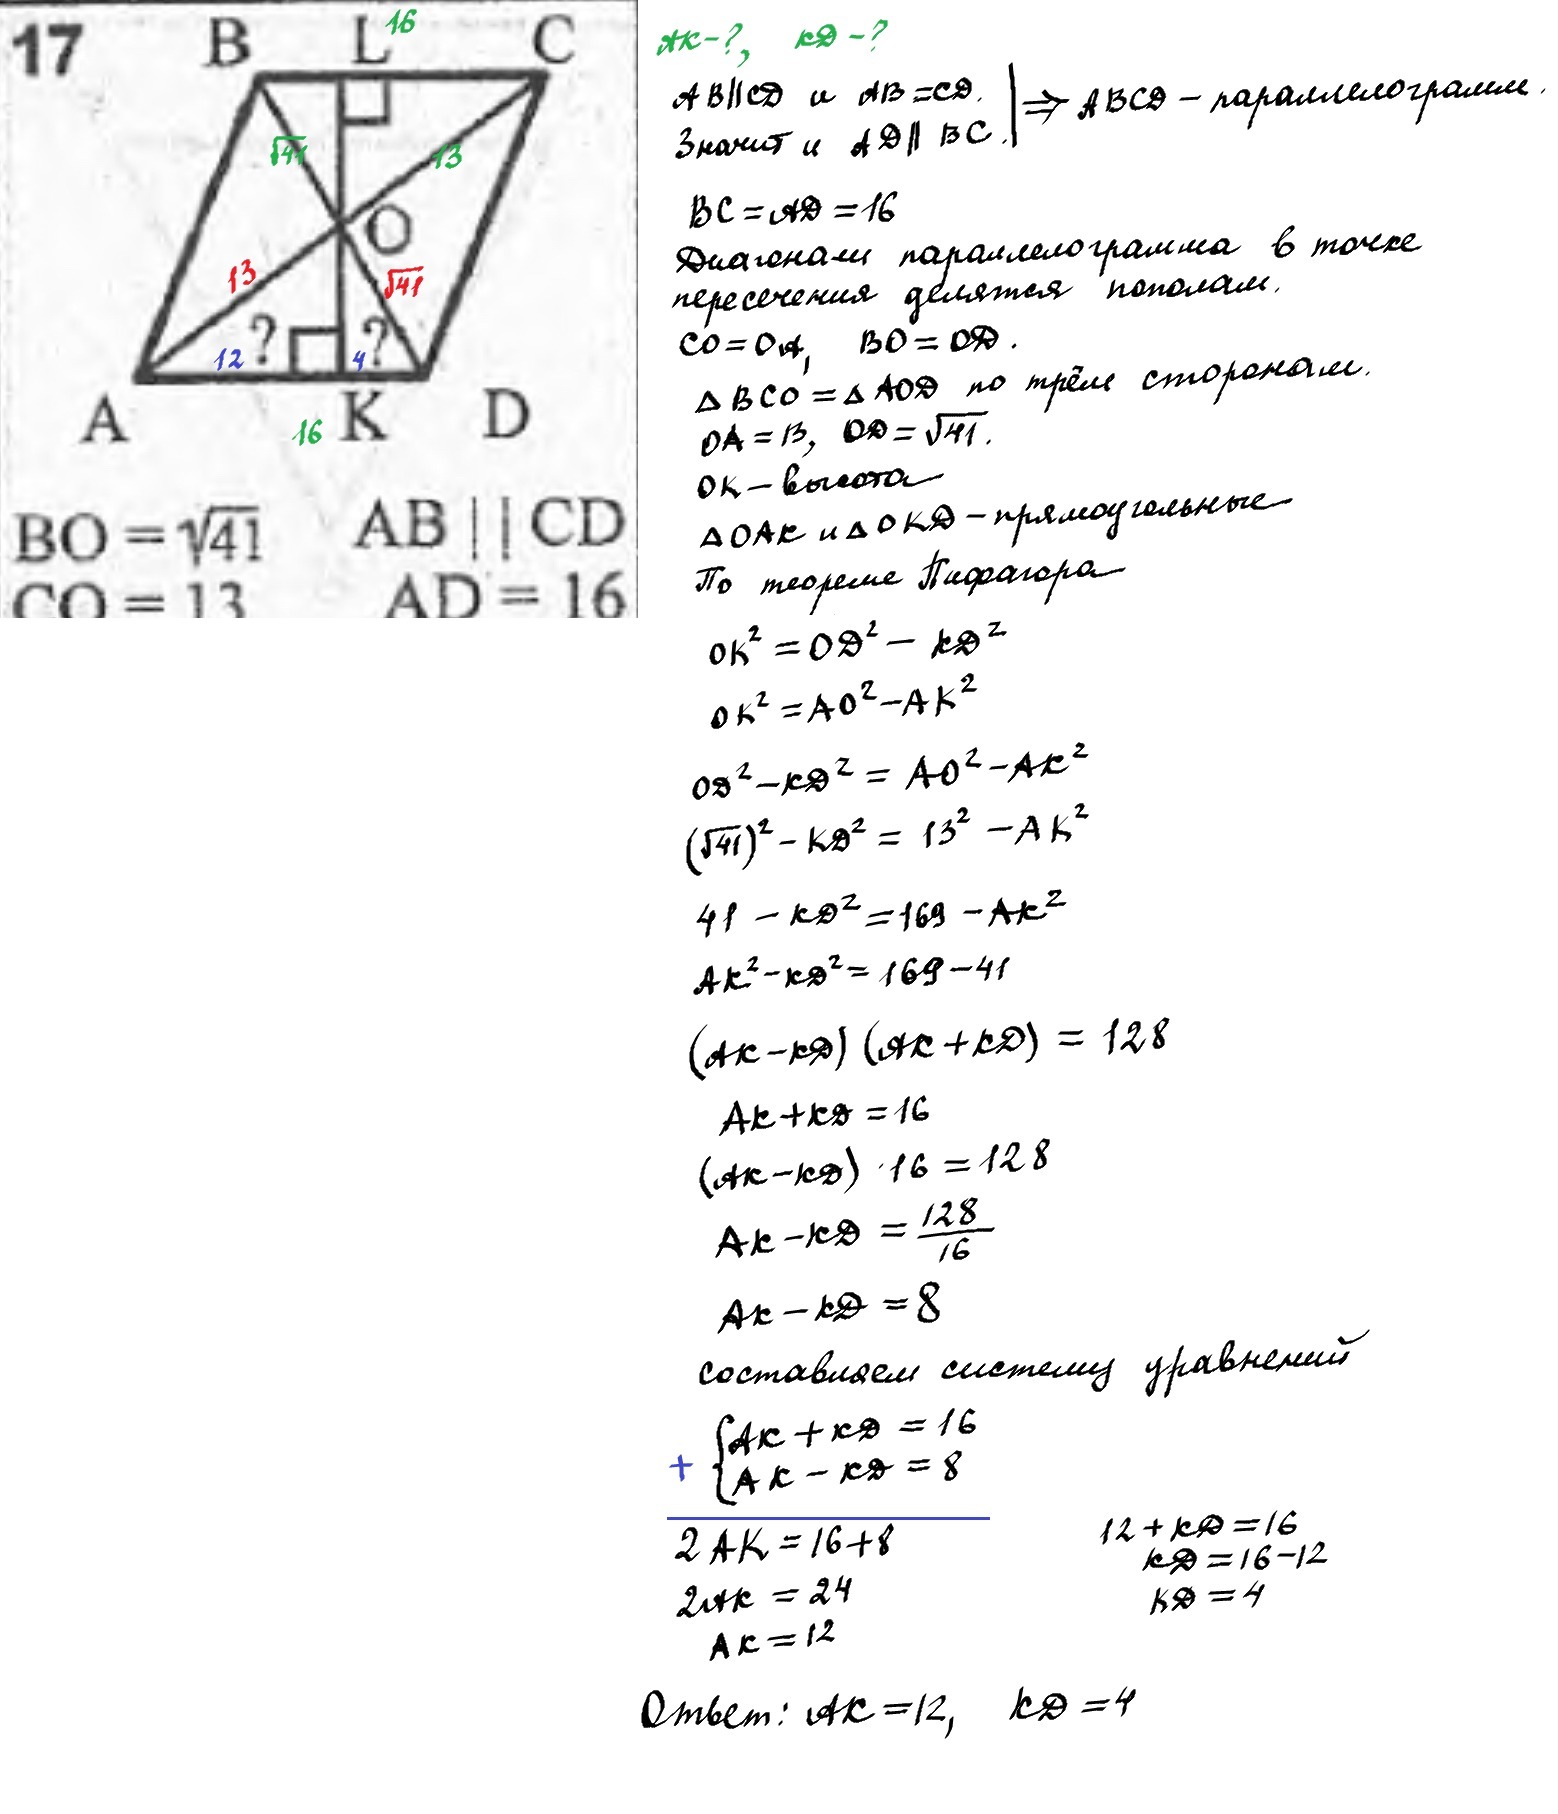 17
B L 16 C
√41 13
O
13 √41
12 ? 4 ?
A 16 K D
BO = √41 AB || CD
CO = 13 AD = 16
AK-?, KD-?
AB||CD и AB=CD.
Значит и AD || BC. ⇒ ABCD - параллелограмм.
BC = AD = 16
Диагонали параллелограмма в точке
пересечения делятся пополам.
CO = OA, BO = OD.
△BCO = △AOD по трём сторонам.
OA = 13, OD = √41.
OK - высота
△OAK и △OKD - прямоугольные
По теореме Пифагора
OK² = OD² - KD²
OK² = AO² - AK²
OD² - KD² = AO² - AK²
(√41)² - KD² = 13² - AK²
41 - KD² = 169 - AK²
AK² - KD² = 169 - 41
(AK - KD) (AK + KD) = 128
AK + KD = 16
(AK - KD) · 16 = 128
AK - KD = 128/16
AK - KD = 8
составляем систему уравнений
{AK + KD = 16
+ {AK - KD = 8
2 AK = 16 + 8
2AK = 24
AK = 12
12 + KD = 16
KD = 16 - 12
KD = 4
Ответ: AK = 12, KD = 4